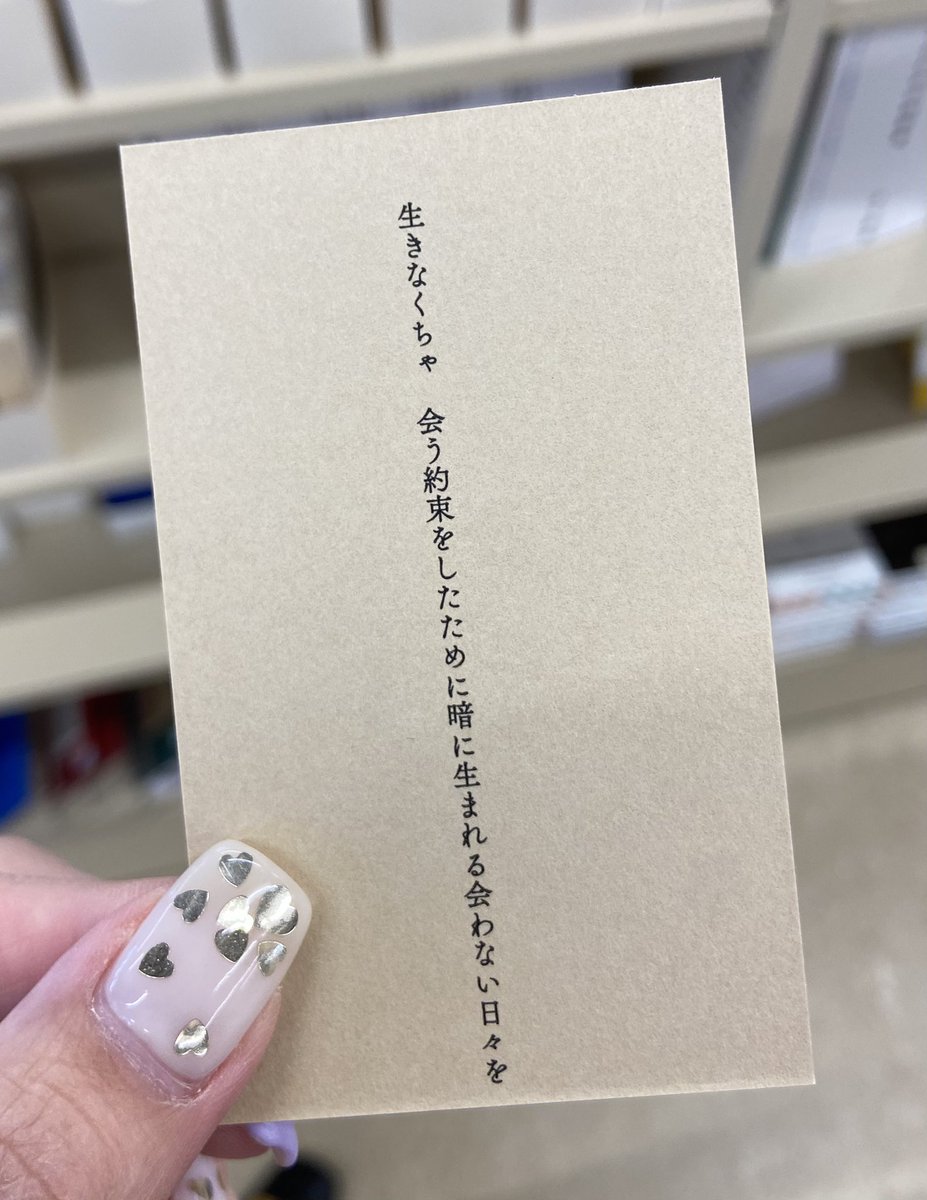 生きなくちゃ　会う約束をしたために暗に生まれる会わない日々を